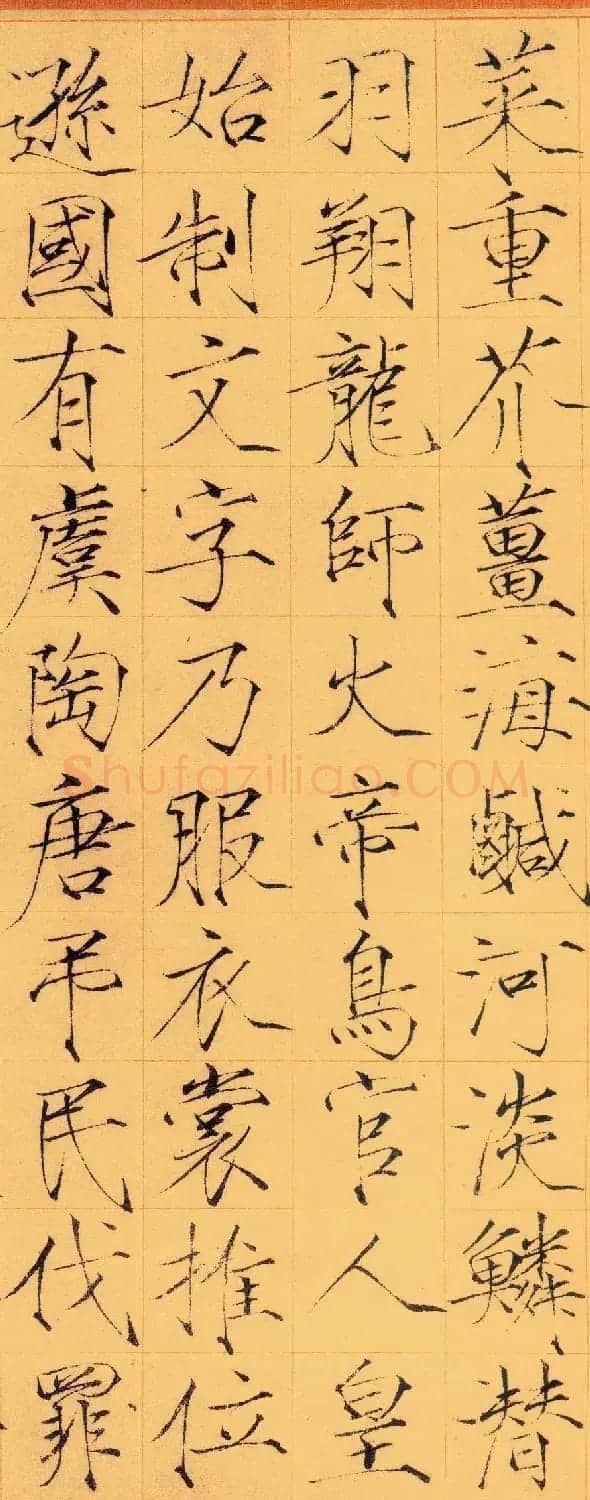 菜重芥薑海鹹河淡鱗潜
羽翔龍師火帝鳥官人皇
始制文字乃服衣裳推位
遜國有虞陶唐吊民伐罪
Shufaziliao.COM